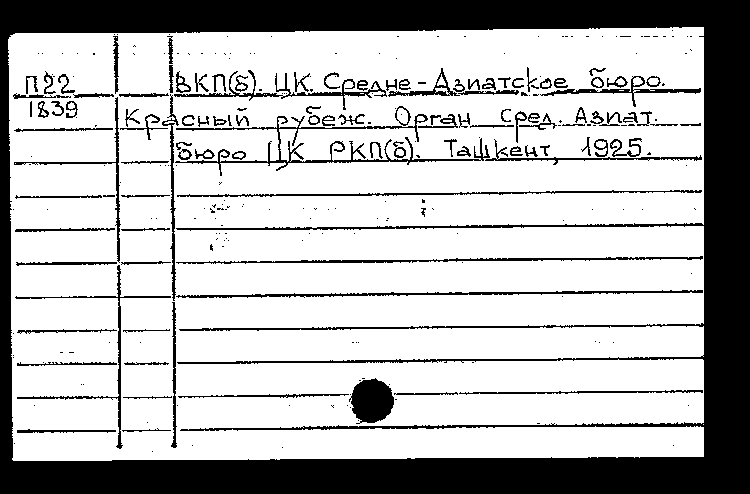 П22 ВКП(б). ЦК. Средне-Азиатское бюро.
1839 Красный рубеж. Орган Сред. Азиат.
бюро ЦК РКП(б). Ташкент, 1925.